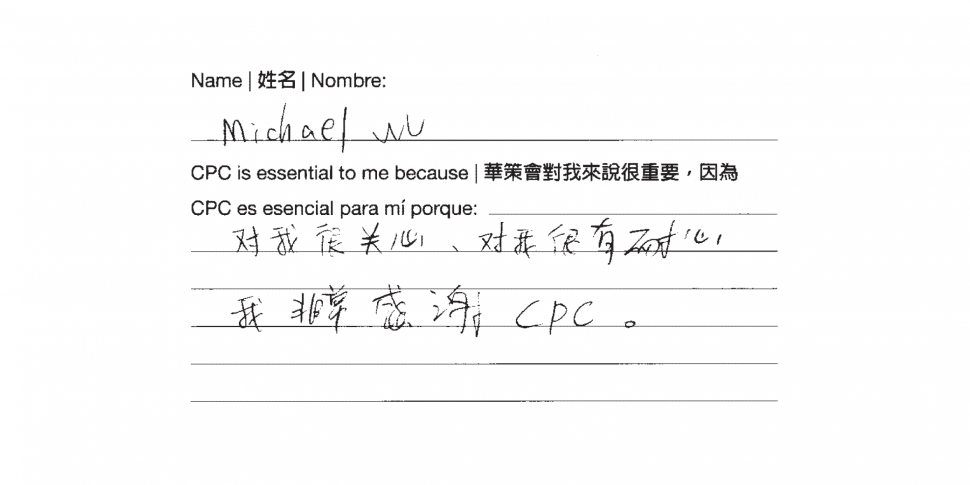 Name | 姓名 | Nombre:
Michael Wu
CPC is essential to me because | 華策會對我來說很重要，因為
CPC es esencial para mí porque:
对我很关心、对我很有耐心
我非常感谢 CPC。